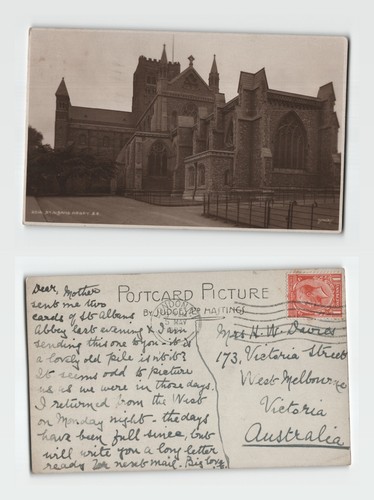 ST ALBANS ABBEY
POSTCARD PICTURE
BY JUDGES LTD HASTINGS
LONDON
MAY
Dear, Mother
sent me two
cards of St Albans
Abbey last evening & I am
sending this one to you it is
a lovely old pile isn't it?
It seems odd to picture
as we were in those days.
I returned from the West
on Monday night - the days
have been full since, but
will write you a long letter
ready for next mail. Big love
Mrs H. W. Davies
173, Victoria Street
West Melbourne
Victoria
Australia